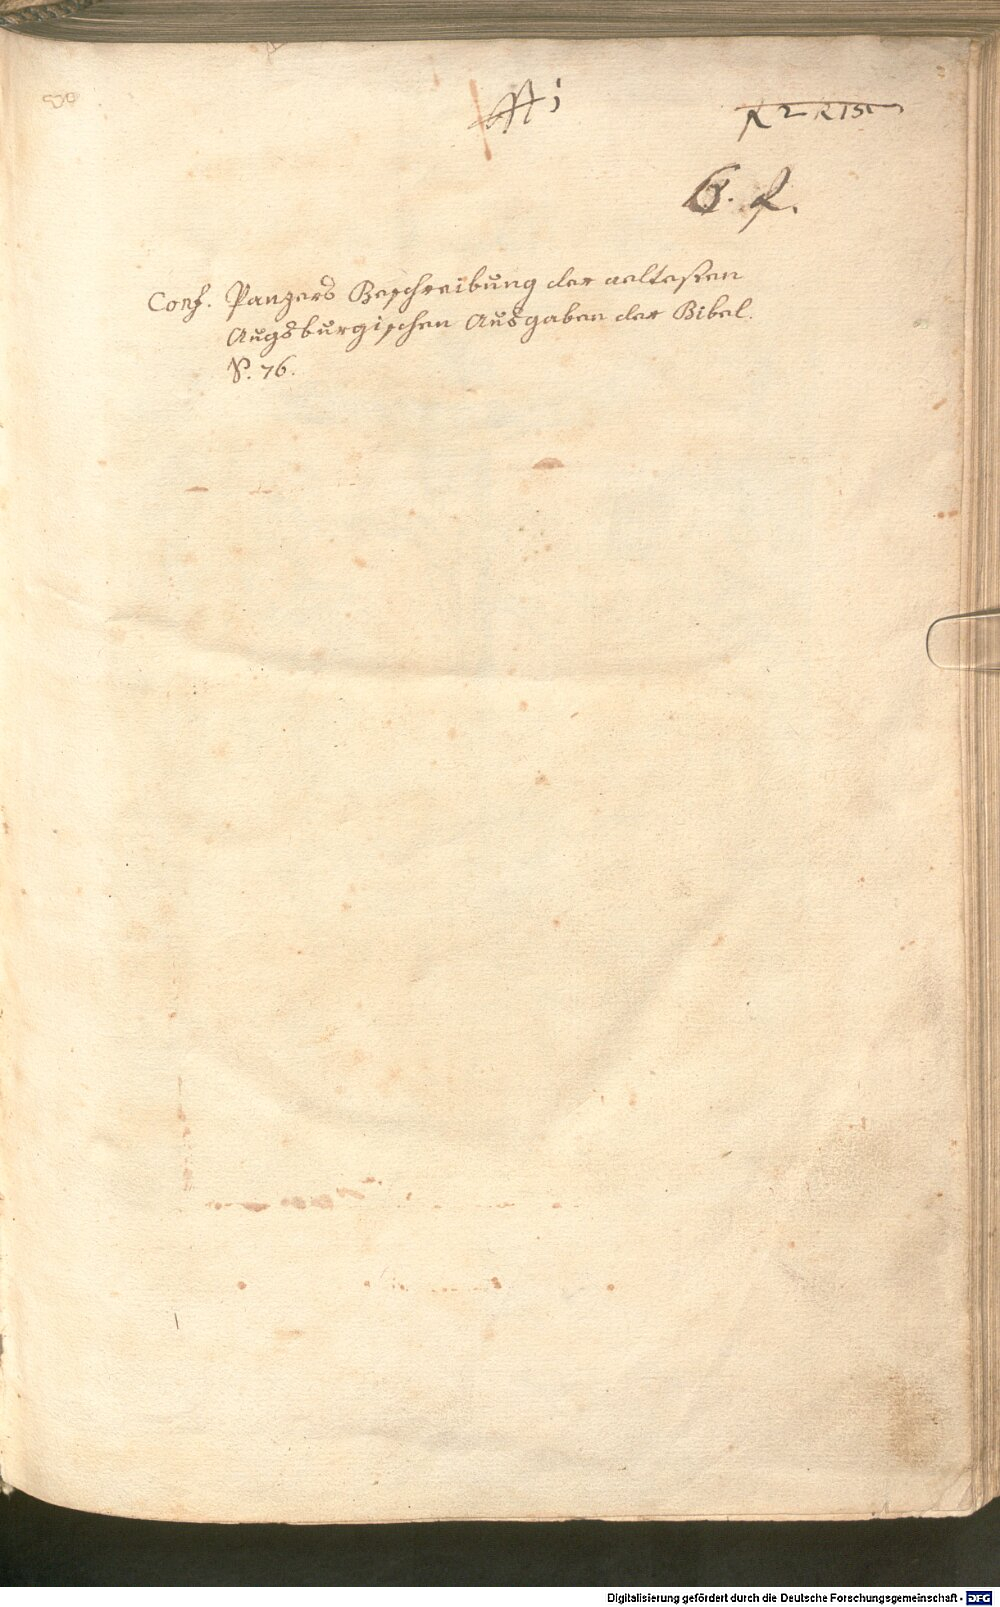 B. 2.
Conf. Panzers Beschreibung der aeltesten
Augsburgischen Ausgaben der Bibel.
S. 76.
Digitalisierung gefördert durch die Deutsche Forschungsgemeinschaft - DFG